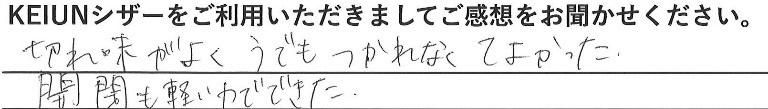 KEIUNシザーをご利用いただきましてご感想をお聞かせください。
切れ味がよくうでもつかれなくてよかった.
開閉も軽い力でできた.